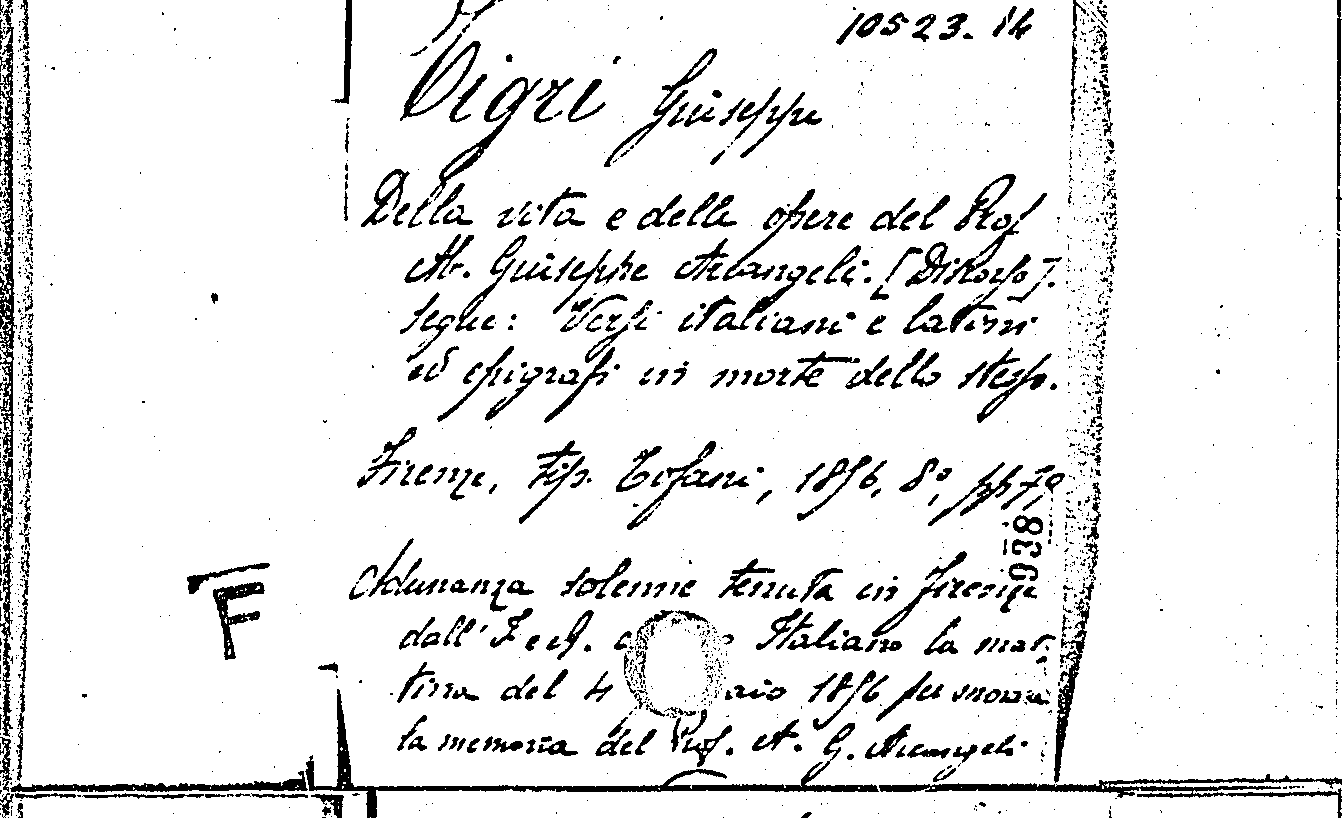 10523. 14
Vigri Giuseppe
Della vita e delle opere del Prof
Ab. Giuseppe Arcangeli. [Discorso].
segue: Versi italiani e latini
ed epigrafi in morte dello stesso.
Firenze, tip. Tofani, 1856, 8º, pp
938
Adunanza solenne tenuta in Firenze
F
dall' I e R. Italiano la mat-
tina del 4 aio 1856 per onorare
la memoria del Prof. A. G. Arcangeli